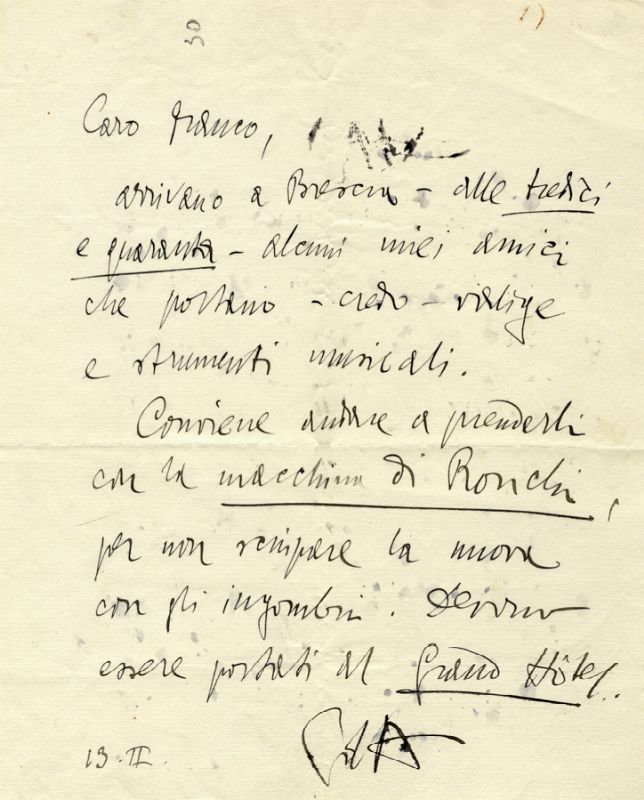 30
Caro Franco,
arrivano a Brescia - alle tredici
e quaranta - alcuni miei amici
che portano - credo - valige
e strumenti musicali.
Conviene andare a prenderli
con la macchina di Ronchi,
per non sciupare la nuova
con gli ingombri. Devono
essere portati al Grand Hôtel.
13. II